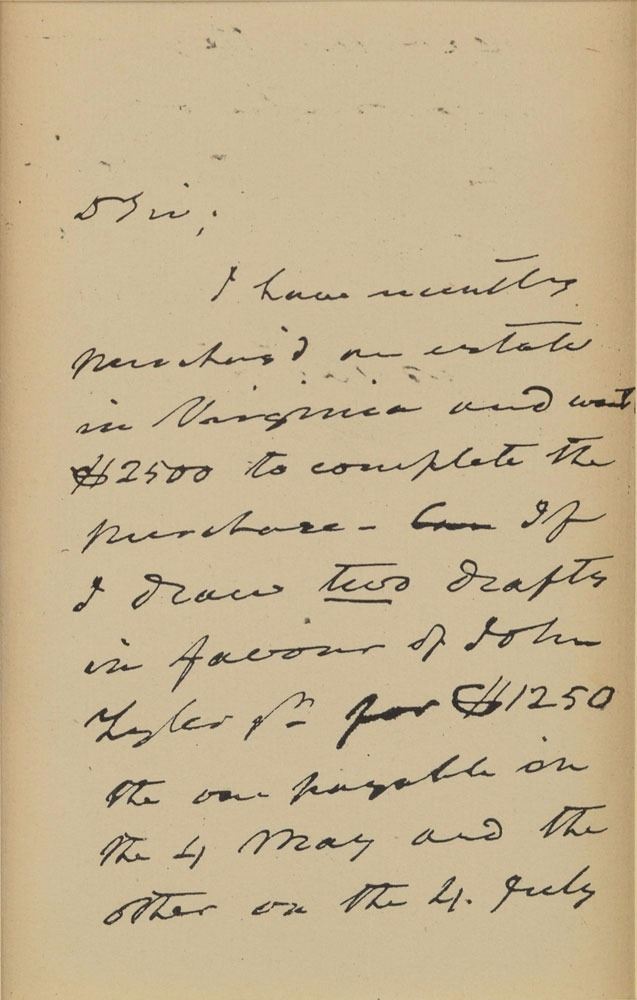 D Sir,
I have recently
purchas'd an estate
in Virginia and want
$2500 to complete the
purchase - Can If
I draw two drafts
in favour of John
Tyler Jr for $1250
the one payable on
the 4 May and the
other on the 4. July